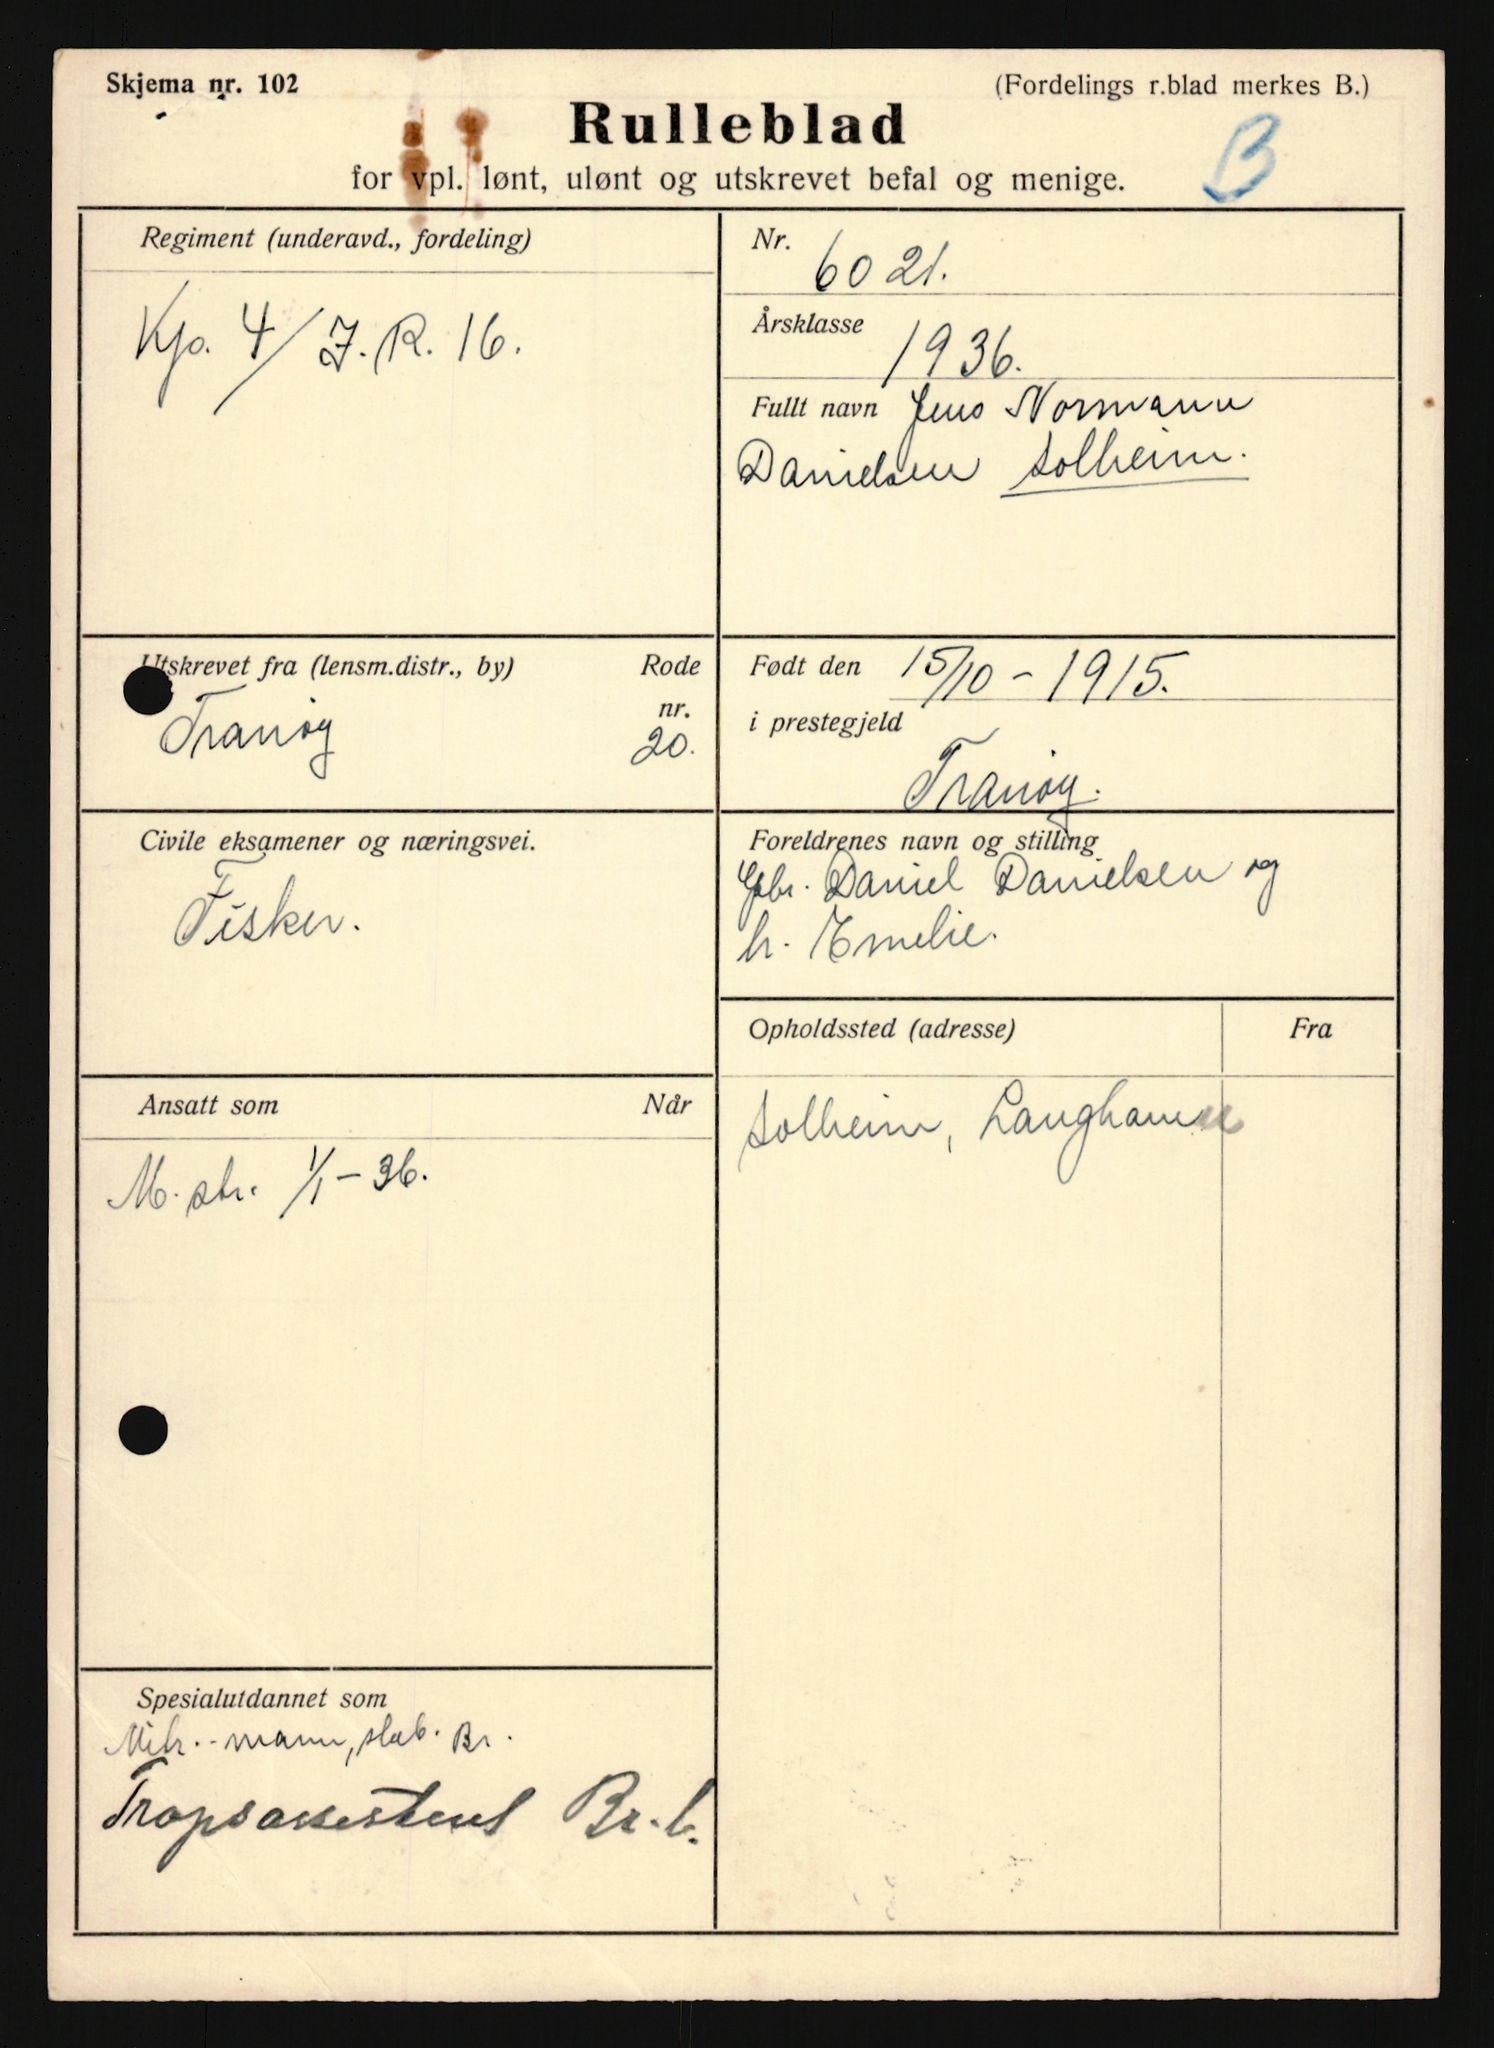 Skjema nr. 102
(Fordelings r.blad merkes B.)
Rulleblad
B
for vpl. lønt, ulønt og utskrevet befal og menige.
Regiment (underavd., fordeling)
Kp. 4/ J.R. 16.
Nr.
6021.
Årsklasse
1936.
Fullt navn Jens Normann
Danielsen Solheim.
Utskrevet fra (lensm.distr., by)
Rode
nr.
Tranøy
20.
Født den 15/10 - 1915.
i prestegjeld
Tranøy.
Civile eksamener og næringsvei.
Fisker.
Foreldrenes navn og stilling
Gbr. Daniel Danielsen og
h. Emelie.
Opholdssted (adresse)
Fra
Solheim, Langhamn
Ansatt som
Når
M. str. 1/1 - 36.
Spesialutdannet som
Mitr.-mann, stab. Br.
Tropsassistent Br. b.